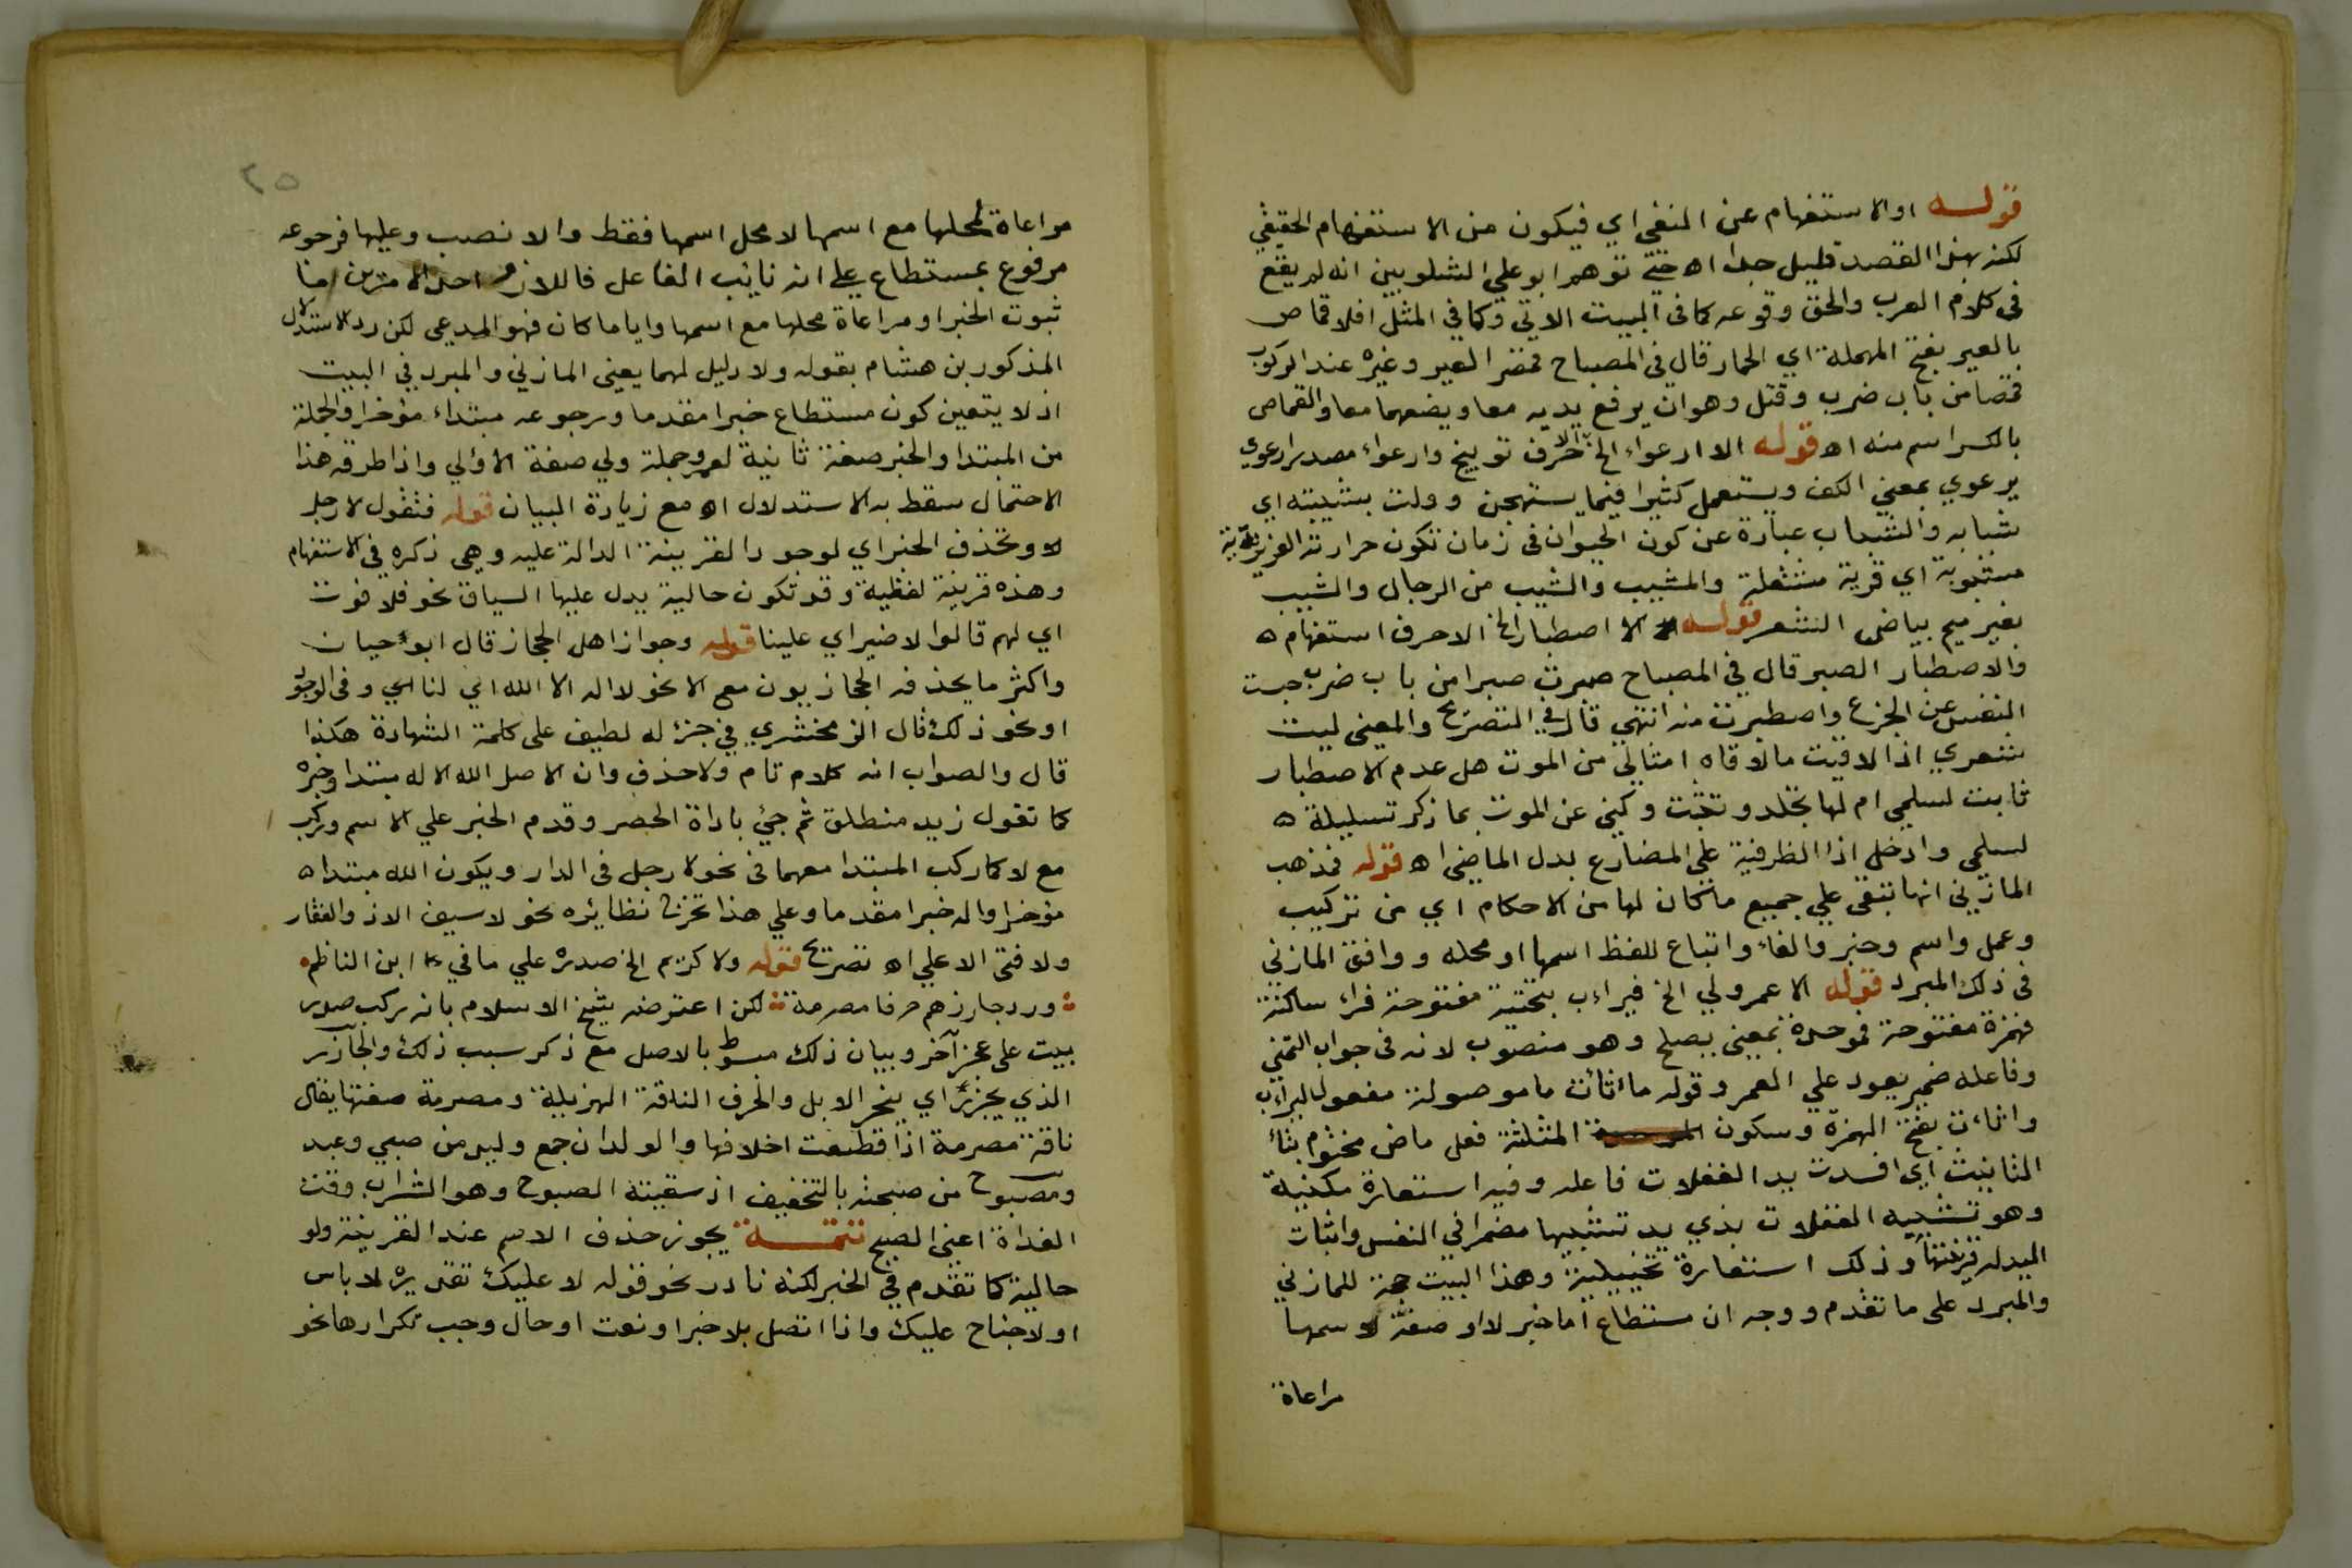 قوله او الاستفهام عن المنفي اي فيكون من الاستفهام الحقيقي
لكنه بهذا القصد قليل جدا اه حتي توهم ابو علي الشلوبين انه لم يقع
في كلام العرب والحق وقوعه كما في البيت الاتي وكما في المثل افلا قماص
بالعير بفتح المهملة اي الحمار قال في المصباح قمض العير وغيره عند الركوب
قمصا من باب ضرب وقتل وهو ان يرفع يديه معا ويضعهما معا والقماص
بالكسر اسم منه اه قوله الا ارعواء الخ الا حرف توبيخ وارعواء مصدر ارعوي
يرعوي بمعني الكف ويستعمل كثيرا فيما يستهجن وولت بشبيبته اي
شبابه والشباب عبارة عن كون الحيوان في زمان تكون حرارته الغريزية
مشبوبة اي قوية مشتعلة والمشيب والشيب من الرجال والشيب
بغير ميم بياض الشعر قوله الا اصطبار الخ الا حرف استفهام ه
والاصطبار الصبر قال في المصباح صبرت صبرا من باب ضرب حبست
النفس عن الجزع واصطبرت منه انتهي قال في التصريح والمعني ليت
شعري اذا لاقيت ما لاقاه امثالي من الموت هل عدم الاصطبار
ثابت لسلمي ام لها تجلد وتثبت وكني عن الموت بما ذكر تسلية ه
لسلمي وادخل اذا الظرفية علي المضارع بدل الماضي اه قوله فمذهب
المازني انها تبقي علي جميع ما كان لها من الاحكام اي من تركيب
وعمل واسم وخبر والغاء واتباع للفظ اسمها او محله ووافق المازني
في ذلك المبرد قوله الا عمر ولي الخ فيراب بتحتية مفتوحة فراء ساكنة
فهمزة مفتوحة فموحدة بمعني يصلح وهو منصوب لانه في جواب التمني
وفاعله ضمير يعود علي العمر وقوله ما اثات ما موصولة مفعول ليراب
واثات بفتح الهمزة وسكون المثلثة فعل ماض مختوم بتاء
التانيث اي افسدت يد الغفلات فاعله وفيه استعارة مكنية
وهو تشبيه الغفلات بذي يد تشبيها مضمرا في النفس واثبات
اليد له قرينتها وذلك استعارة تخييلية وهذا البيت حجة للمازني
والمبرد علي ما تقدم ووجه ان مستطاع اما خبر لا او صفة لاسمها
مراعاة
٢٥
مراعاة لمحلها مع اسمها لا محل اسمها فقط والا نصب وعليها فرجوعه
مرفوع بمستطاع علي انه نائب الفاعل فاللازم احد الامرين اما
ثبوت الخبر او مراعاة محلها مع اسمها وايا ما كان فهو المدعي لكن رد الاستدلال
المذكور بن هشام بقوله ولا دليل لهما يعني المازني والمبرد في البيت
اذ لا يتعين كون مستطاع خبرا مقدما ورجوعه مبتداء مؤخرا والجملة
من المبتدا والخبر صفة ثانية لعمر وجملة ولي صفة الاولي واذا طرقه هذا
الاحتمال سقط به الاستدلال اه مع زيادة البيان قوله فتقول لا رجل
لا وتحذف الخبر اي لوجود القرينة الدالة عليه وهي ذكره في الاستفهام
وهذه قرينة لفظية وقد تكون حالية يدل عليها السياق نحو فلا فوت
اي لهم قالوا لا ضير اي علينا قوله وجوازا اهل الحجاز قال ابو حيان
واكثر ما يحذفه الحجازيون مع الا نحو لا اله الا الله اي لنا اي وفي الوجود
او نحو ذلك قال الزمخشري في جزء له لطيف علي كلمة الشهادة هكذا
قال والصواب انه كلام تام ولا حذف وان الاصل الله اله مبتدا وخبره
كما تقول زيد منطلق ثم جئ باداة الحصر وقدم الخبر علي الاسم وركب
مع لا كما ركب المبتدا معهما في نحو لا رجل في الدار ويكون الله مبتدا ه
مؤخرا واله خبرا مقدما وعلي هذا تخرج نظائره نحو لا سيف الا ذو الفقار
ولا فتي الا علي اه تصريح قوله ولا كريم الخ صدره علي ما في ابن الناظم
ورد جازرهم حرفا مصرمة لكن اعترضه شيخ الاسلام بانه ركب صدر
بيت علي عجز آخر وبيان ذلك مسوط بالاصل مع ذكر سبب ذلك والجازر
الذي يجزر اي ينحر الابل والحرف الناقة الهزيلة ومصرمة صفتها يقال
ناقة مصرمة اذا قطعت اخلافها والولدان جمع وليد من صبي وعبد
ومصبوح من صبحته بالتخفيف اذ سقيته الصبوح وهو الشراب وقت
الغداة اعني الصبح تتمة يجوز حذف الاسم عند القرينة ولو
حالية كما تقدم في الخبر لكنه نادر نحو قوله لا عليك تقديره لا باس
او لا جناح عليك واذا اتصل بلا خبر او نعت او حال وجب تكرارها نحو